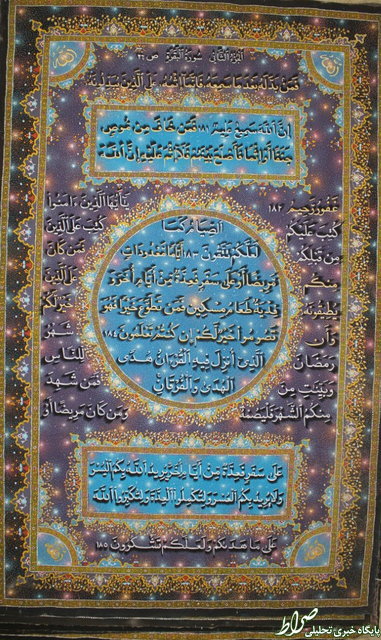 الجزء الثاني سورة البقرة ص
فمن بدله بعد ما سمعه فإنما إثمه على الذين يبدلونه
إن الله سميع عليم ١٨١ فمن خاف من موص
جنفا أو إثما فأصلح بينهم فلا إثم عليه إن الله
غفور رحيم ١٨٢ يأيها الذين ءامنوا
كتب عليكم الصيام كما كتب على الذين
من قبلكم لعلكم تتقون ١٨٣ أياما معدودات فمن كان
منكم مريضا أو على سفر فعدة من أيام أخر وعلى الذين
يطيقونه فدية طعام مسكين فمن تطوع خيرا فهو خير لكم
وأن تصوموا خير لكم إن كنتم تعلمون ١٨٤ شهر
رمضان الذي أنزل فيه القرءان هدى للناس
وبينت من الهدى والفرقان فمن شهد
منكم الشهر فليصمه ومن كان مريضا أو
على سفر فعدة من أيام أخر يريد الله بكم اليسر
ولا يريد بكم العسر ولتكملوا العدة ولتكبروا الله
على ما هدىكم ولعلكم تشكرون ١٨٥
صراط
پایگاه خبری تحلیلی